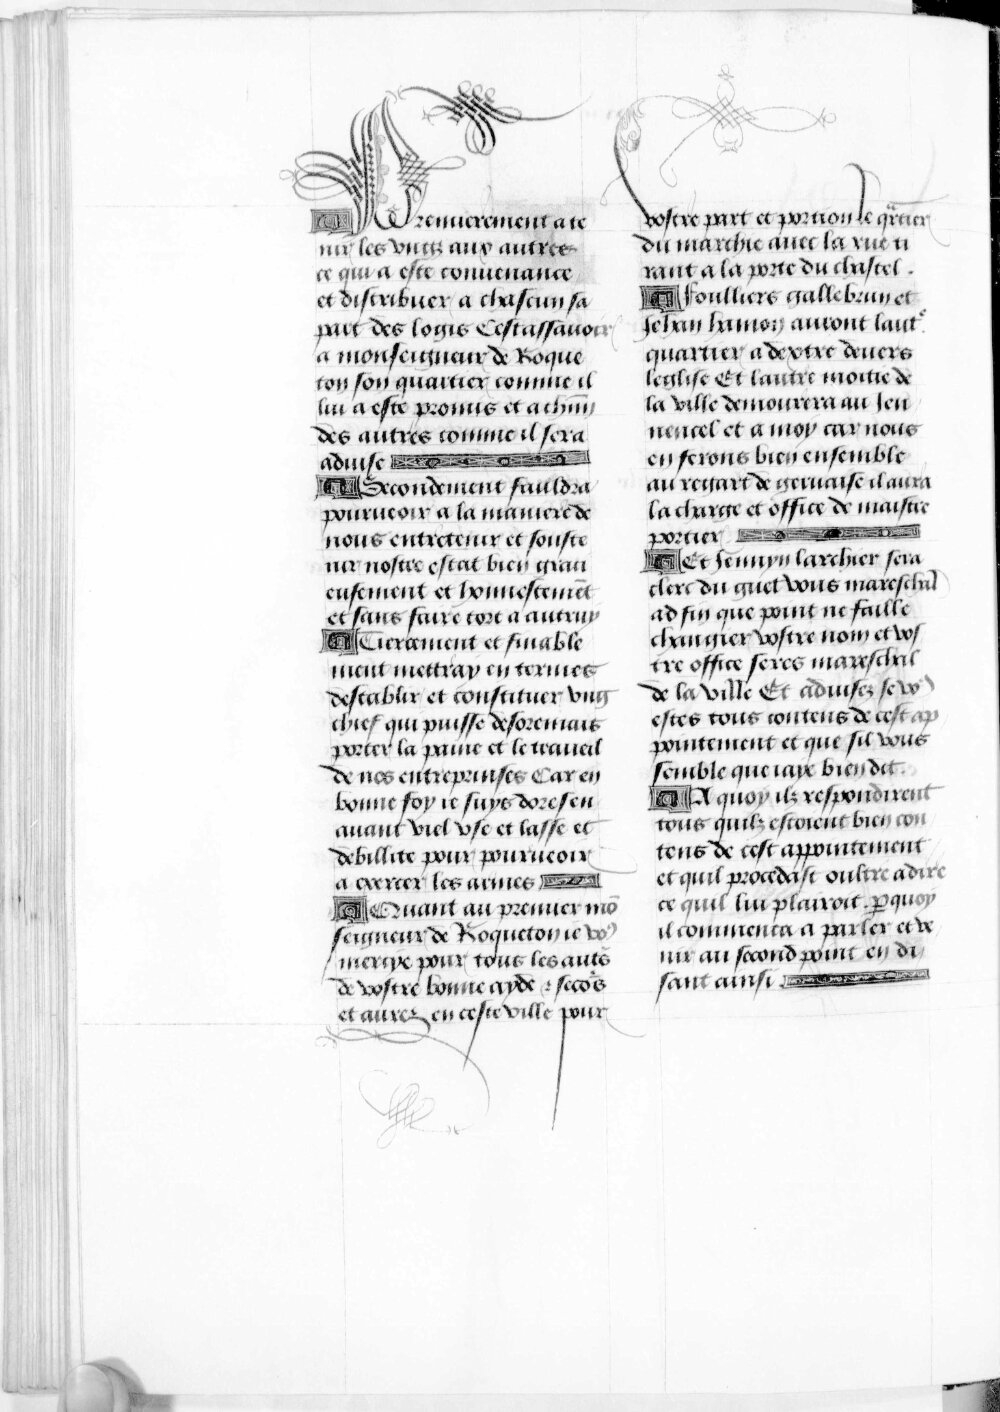 Premierement a te
nir les vngz aux autres
ce qui a este conuenance
et distribuer a chascun sa
part des logis Cestassauoir
a monseigneur de Roque
ton son quartier comme il
lui a este promis et a chūn
des autres comme il sera
aduise
Secondement fauldra
pourueoir a la maniere de
nous entretenir et souste
nir nostre estat bien graci
eusement et honnestemēt
et sans faire tort a autruy
Tiercement et finable
ment mettray en termes
destablir et constituer vng
chief qui puisse desoremais
porter la paine et le traueil
de nos entreprinses Car en
bonne foy ie suys doresen
auant viel vse et lasse et
debillite pour pourueoir
a exercer les armes
Quant au premier mō
seigneur de Roqueton ie vo9
mercye pour tous les autrs
de vostre bonne ayde z secors
et aurez en ceste ville pour
vostre part et portion le qrtier
du marchie auec la rue ti
rant a la porte du chastel .
Foulliers gallebrun et
Jehan hamon auront laute
quartier a dextre deuers
leglise Et lautre moitie de
la ville demourera au Jen
nencel et a moy car nous
en ferons bien ensemble
au regart de geruaise il aura
la charge et office de maistre
portier
Et Jennyn larchier sera
clerc du guet vous mareschal
ad fin que point ne faille
changier vostre nom et vos
tre office seres mareschal
de la ville Et aduisez se vo9
estes tous contens de cest ap
pointement et que sil vous
semble que iaye bien dit .
A quoy ilz respondirent
tous quilz estoient bien con
tens de cest appointement
et quil procedast oultre a dire
ce quil lui plairoit . ꝑquoy
il commenca a parler et ve
nir au second point en di
sant ainsi